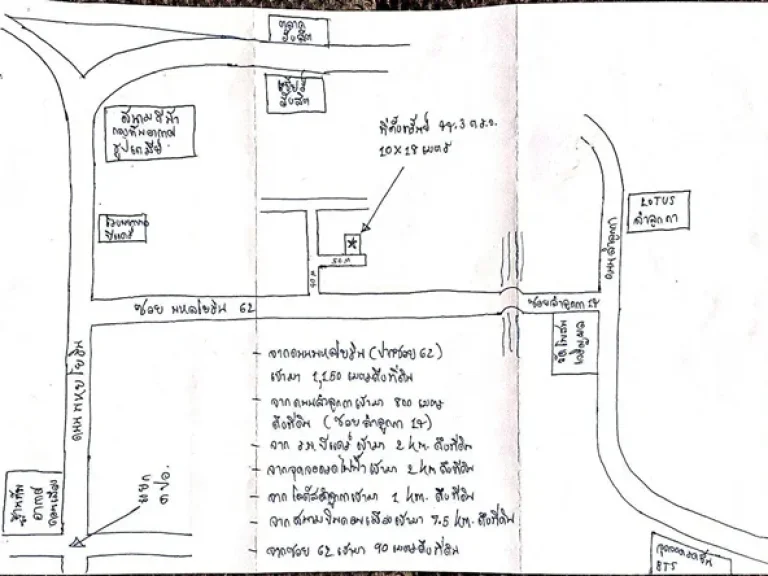 ตลาด
รังสิต
เซียร์
รังสิต
สนามธูปะเตมีย์
กองทัพอากาศ
ที่ตั้งทรัพย์ 44.3 ต.ร.ว.
10 X 18 เมตร
LOTUS
ลำลูกกา
ถนนลำลูกกา
50 M
40 M
ซอย พหลโยธิน 62
ซอยลำลูกกา 14
วัดโพสพ
เจริญผล
ถนน พหลโยธิน
- จากถนนพหลโยธิน (ปากซอย 62)
เข้ามา 1,150 เมตรถึงที่ดิน
- จากถนนลำลูกกาเข้ามา 800 เมตร
ถึงที่ดิน (ซอยลำลูกกา 14)
- จาก ร.พ. เข้ามา 2 km. ถึงที่ดิน
- จากจุดจอดรถไฟฟ้าเข้ามา 2 km ถึงที่ดิน
- จากโลตัสลำลูกกาเข้ามา 1 km. ถึงที่ดิน
- จากสนามบินดอนเมืองเข้ามา 7.5 km. ถึงที่ดิน
- จากซอย 62 เข้ามา 90 เมตรถึงที่ดิน
แยก
คปอ.
อากาศ
ดอนเมือง
BTS